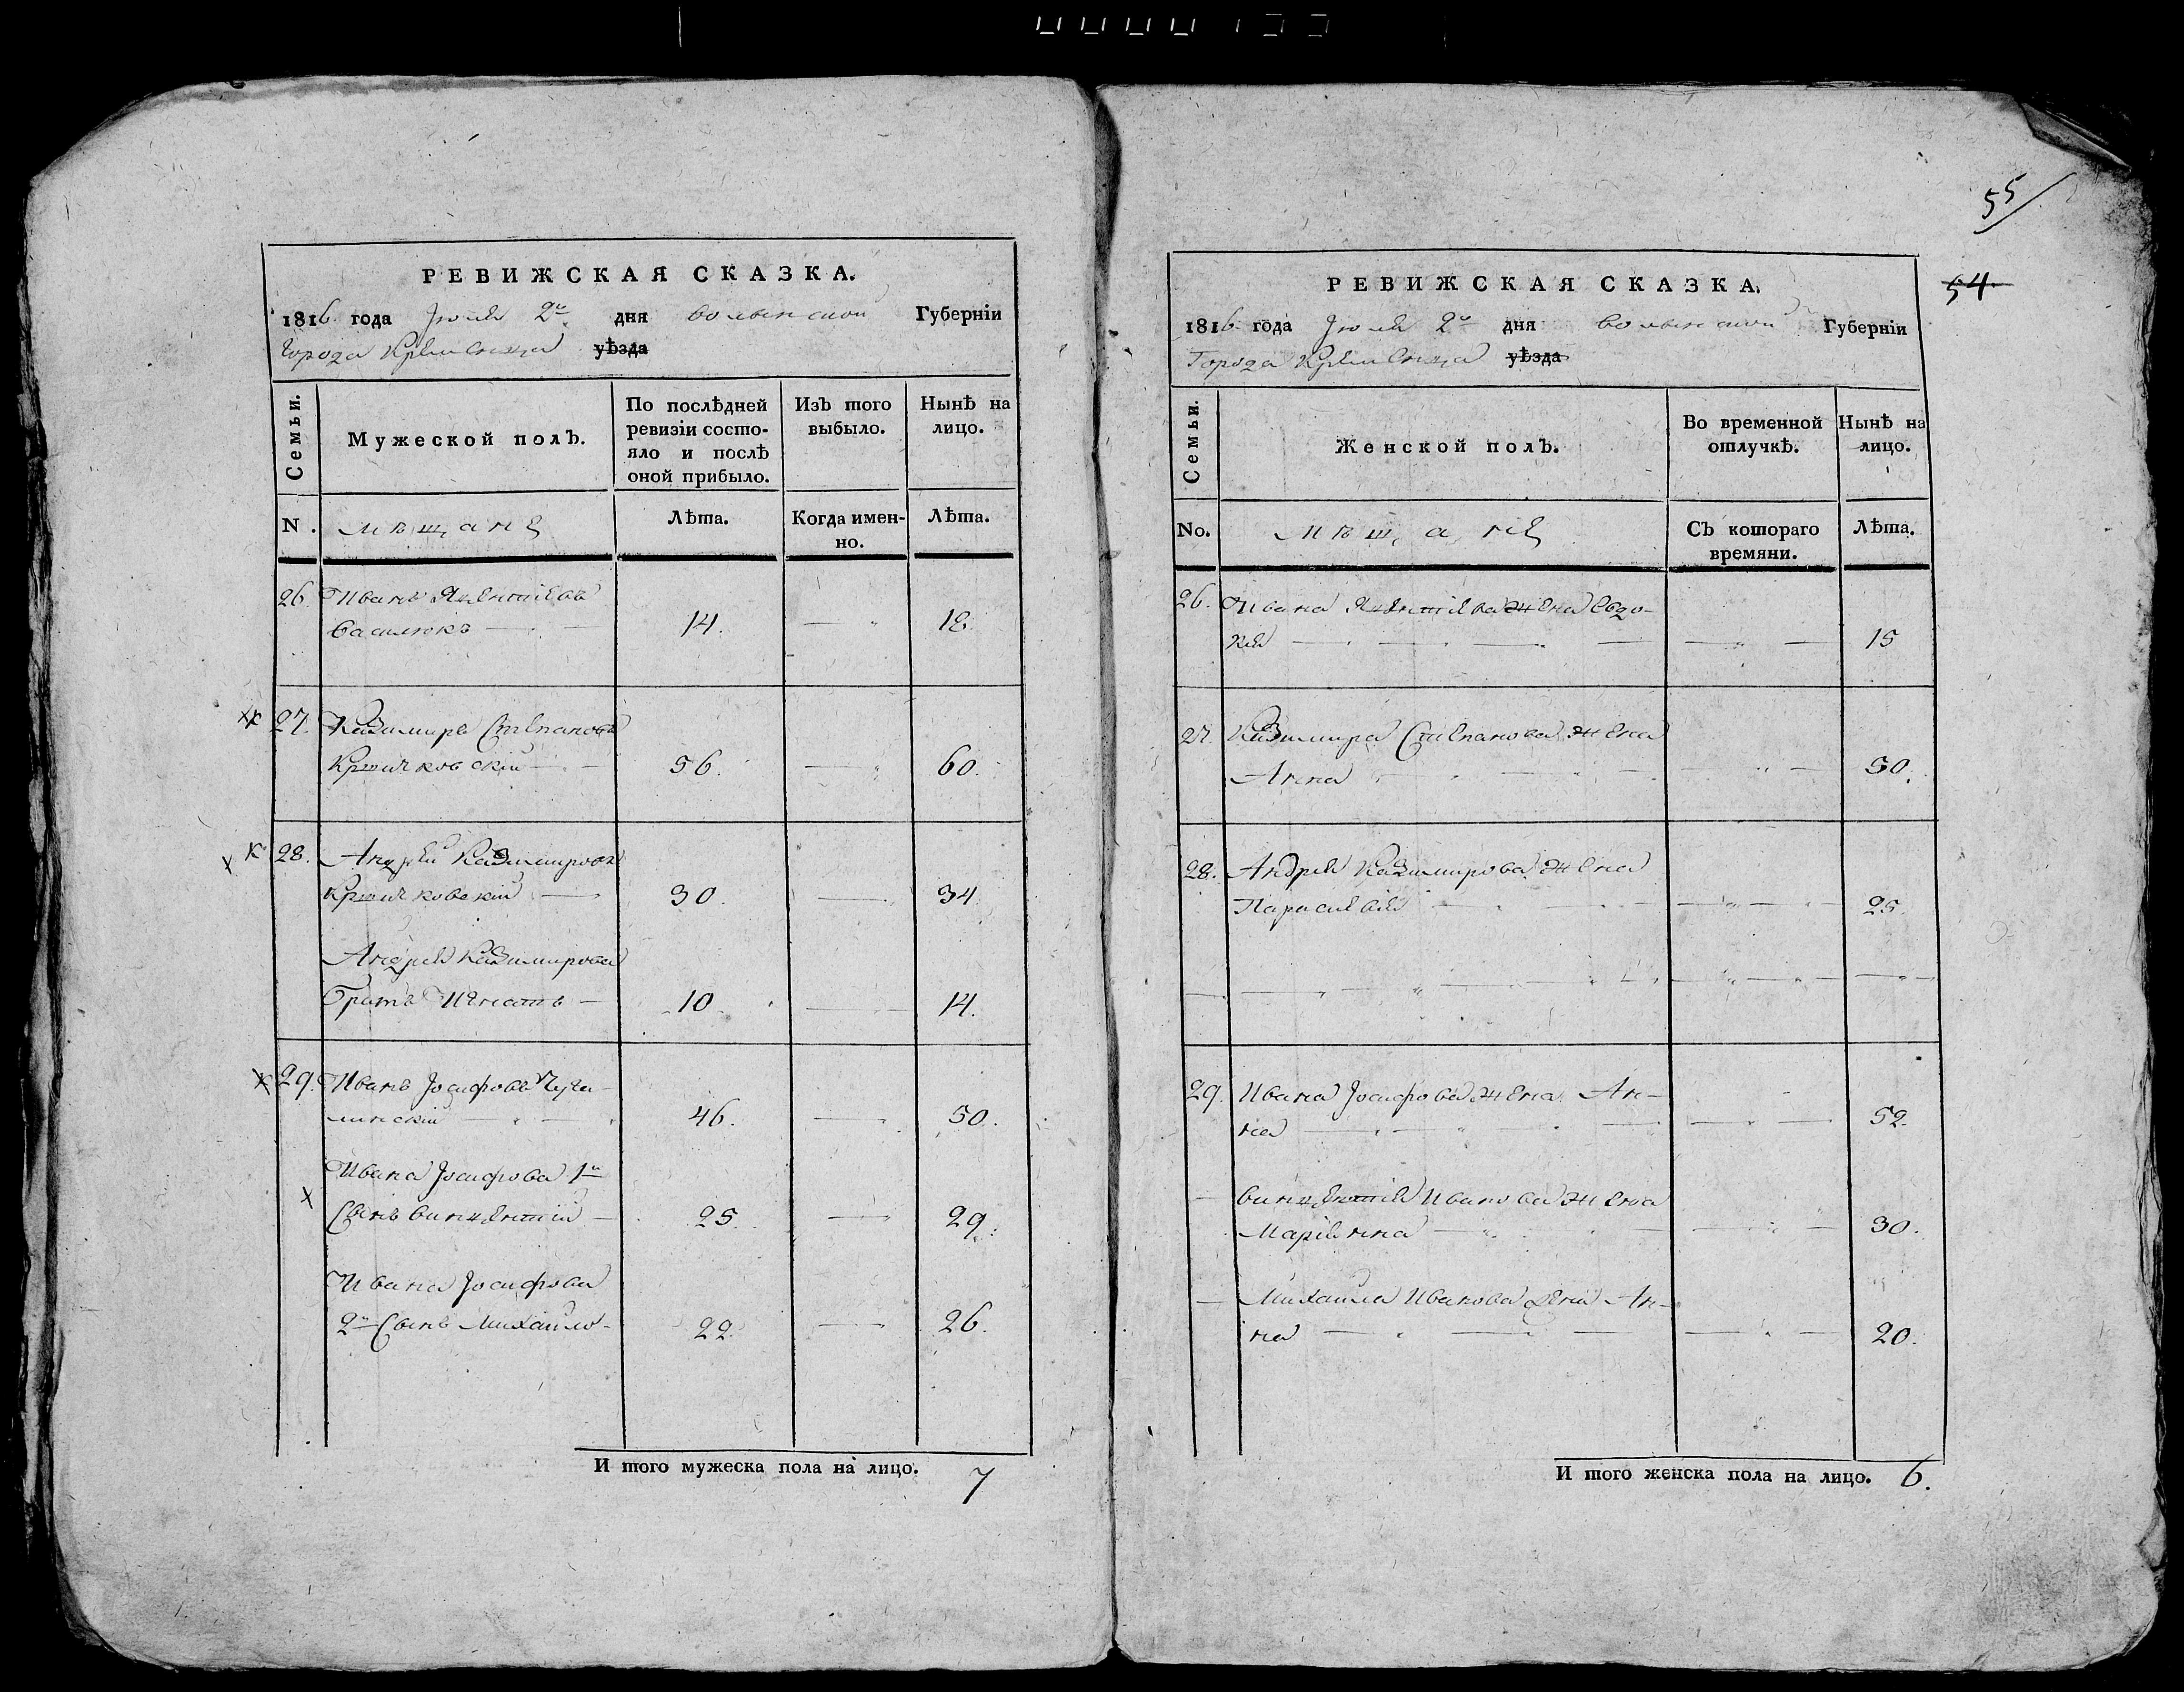 55
54
РЕВИЖСКАЯ СКАЗКА.
1816 года Іюля 2го дня Волынской Губерніи
Города Кременца уѣзда
Семьи.
Мужеской полъ.
По послѣдней ревизіи состо-
яло и послѣ
оной прибыло.
Изъ того
выбыло.
Нынѣ на
лицо.
N.
Мѣщане
Лѣта.
Когда имен-
но.
Лѣта.
26. Иванъ Яцентіевъ
Василюкъ — 14. — 18.
27. Казимиръ Степановъ
Кржичковскій — 56. — 60.
К 28. Андрей Казимировъ
Кржичковскій — 30. — 34
Андрея Казимирова
Братъ Игнатъ — 10. — 14.
29. Иванъ Іосифовъ
линскій — 46. — 50.
Ивана Іосифова 1й
Сынъ Винцентій — 25. — 29.
Ивана Іосифова
2й Сынъ Михайло — 22 — 26.
И того мужеска пола на лицо. 7
РЕВИЖСКАЯ СКАЗКА.
1816 года Іюля 2го дня Волынской Губерніи
Города Кременца уѣзда
Семьи.
Женской полъ.
Во временной
отлучкѣ.
Нынѣ на
лицо.
No.
Мѣщане
Съ котораго
времяни.
Лѣта.
26. Ивана Яцентіева жена Евдо-
кія — 15
27. Казимира Степанова жена
Анна — 50.
28. Андрея Казимирова жена
Параскевія — 25.
29. Ивана Іосифова жена Ан-
на — 52.
— Винцентія Иванова жена
Маріянна — 30.
— Михаила Иванова жена Ан-
на — 20.
И того женска пола на лицо. 6.